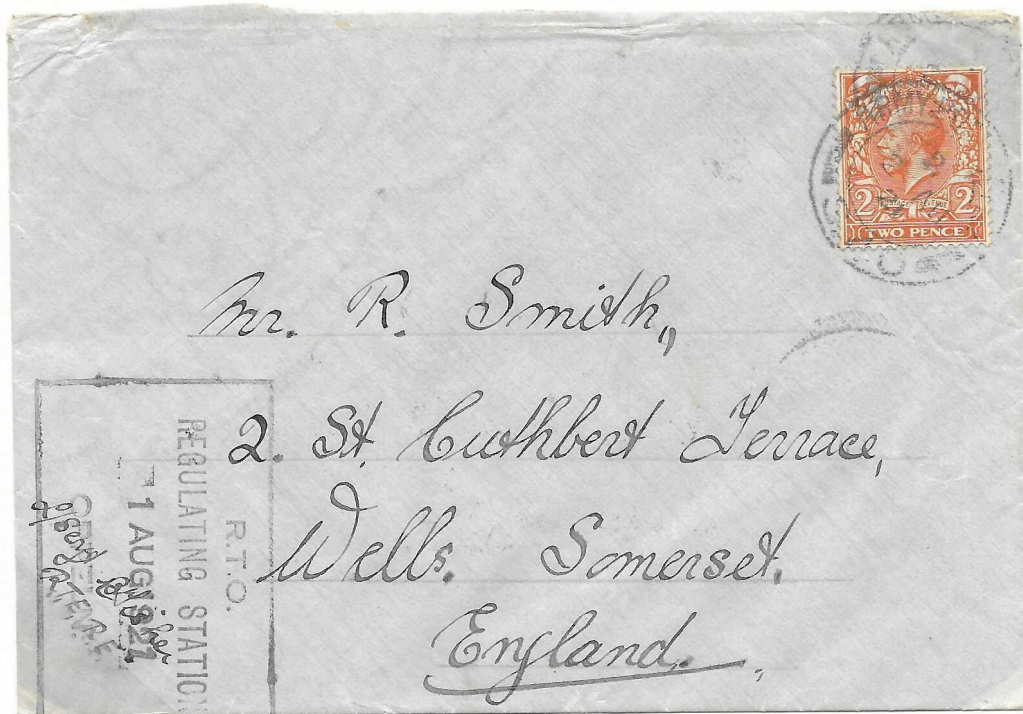 2 2
TWO PENCE
Mr. R. Smith,
2. St. Cuthbert Terrace,
Wells. Somerset.
England.
R.T.O.
REGULATING STATION
1 AUG 1921